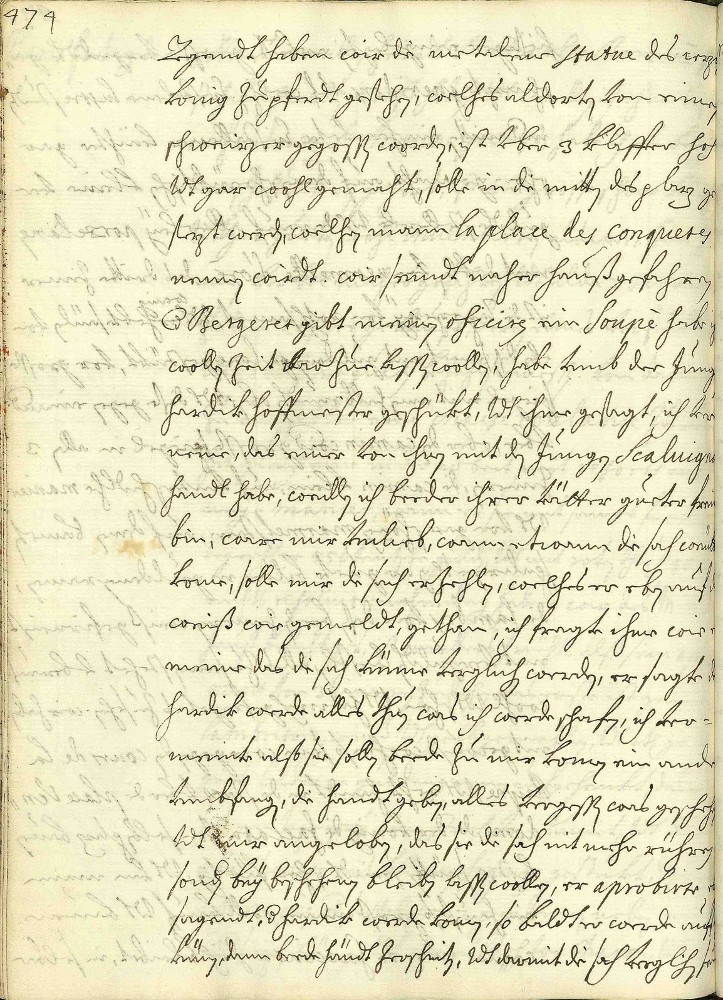 474
Zgendt haben wir die metalene statue des iezi
König zu pferdt gesehen, welches aldorten von einem
schweitzer gegossen worden, ist über 3 klaffter hoh
Undt gar wohl gemacht, solle in die mitten des plaz ge
sezt werden, welchen mann la place des conquetes
nennen wirdt. wir seindt naher hauß gefahren
Bergeret gibt meinen oficirn ein Soupé habe
wollen zeit darzue lassen wollen, habe umb der Jung
hardik hoffmeister geschükt, Undt ihme gesagt, ich ver
neme, das einer von ihnen mit den Jungen Scalvigni
handl habe, weillen ich beeder ihrer vätter gueter frein
bin, ware mir unlieb, wann etwann die sach
kome, solle mir die sach erzehlen, welches er eben auf
weiß wie gemeldt, gethan, ich fragte ihme wie
meine das die sach künne verglichen werden, er sagte
hardik werde alles thun was ich werde schafen, ich ver=
mente also sie sollen beede zu mir komen ein ande
umbfangen, die handt geben, alles vergessen was gescheh
Undt mir angeloben, das sie die sach nit mehr rühren
sondern bey beschehenen bleiben lassen wollen, er aprobirte
sagendt, hardik werde komen, so baldt er werde auß
künen, dann beede händt zerschnitten, Undt darmit die sach verglichen